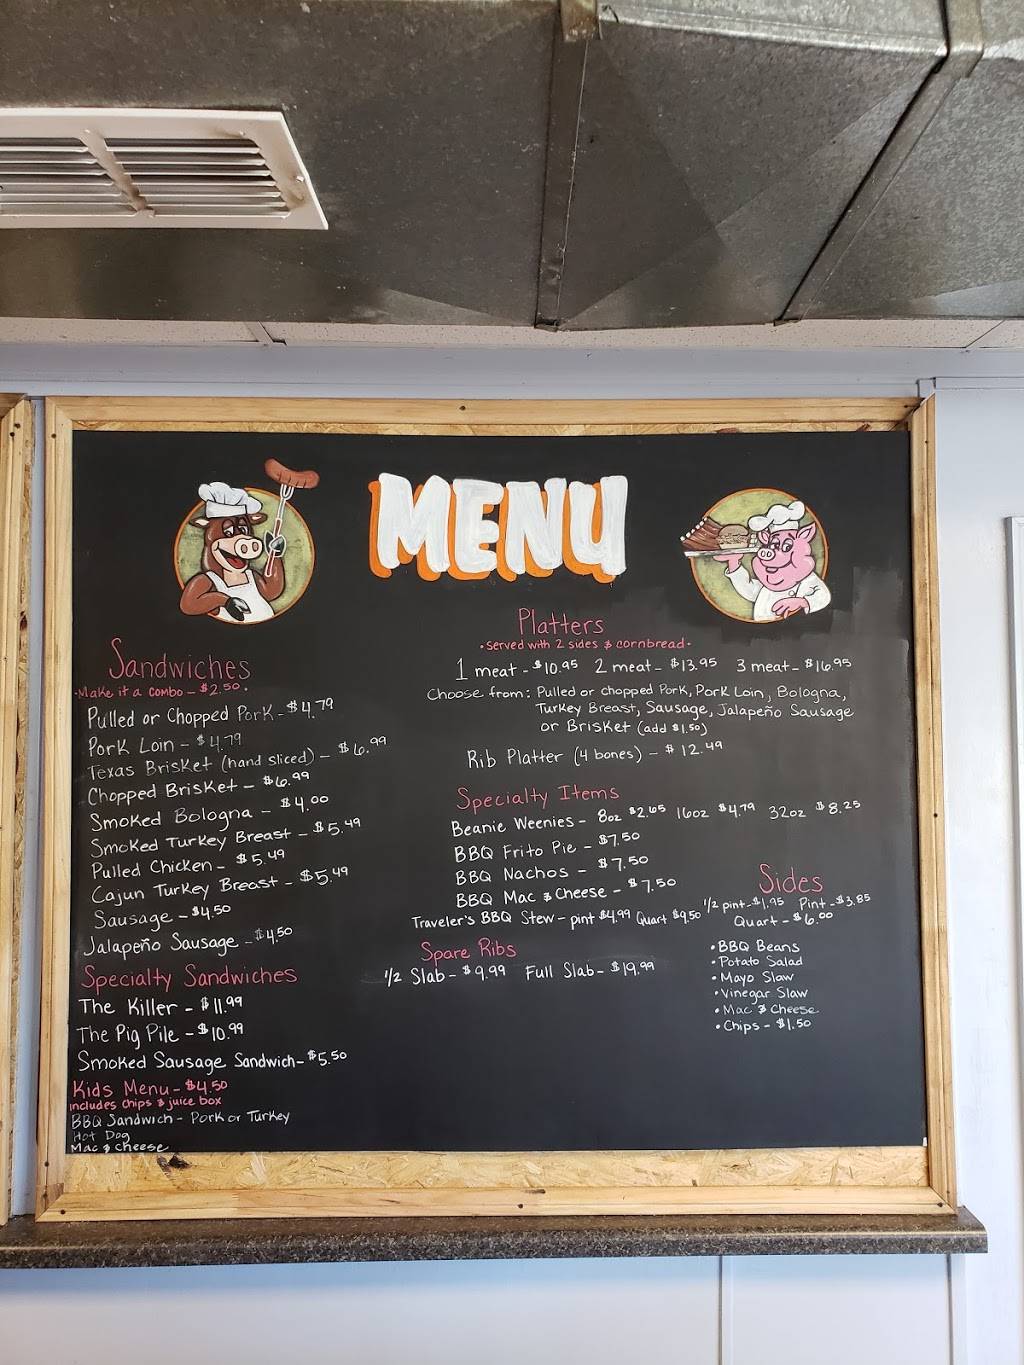 MENU
Sandwiches
·Make it a combo - $2.50.
Pulled or Chopped Pork - $4.79
Pork Loin - $4.79
Texas Brisket (hand sliced) - $6.99
Chopped Brisket - $6.99
Smoked Bologna - $4.00
Smoked Turkey Breast - $5.49
Pulled Chicken - $5.49
Cajun Turkey Breast - $5.49
Sausage - $4.50
Jalapeño Sausage - $4.50
Specialty Sandwiches
The Killer - $11.99
The Pig Pile - $10.99
Smoked Sausage Sandwich - $5.50
Kids Menu - $4.50
includes chips & juice box
BBQ Sandwich - Pork or Turkey
Hot Dog
Mac & Cheese
Platters
·served with 2 sides & cornbread·
1 meat - $10.95 2 meat - $13.95 3 meat - $16.95
Choose from: Pulled or chopped Pork, Pork Loin, Bologna,
Turkey Breast, Sausage, Jalapeño Sausage
or Brisket (add $1.50)
Rib Platter (4 bones) - $12.49
Specialty Items
Beanie Weenies - 8oz $2.65 16oz $4.79 32oz $8.25
BBQ Frito Pie - $7.50
BBQ Nachos - $7.50
BBQ Mac & Cheese - $7.50
Traveler's BBQ Stew - pint $4.99 Quart $9.50
Spare Ribs
1/2 Slab - $9.99 Full Slab - $19.99
Sides
1/2 pint - $1.95 Pint - $3.85
Quart - $6.00
•BBQ Beans
•Potato Salad
•Mayo Slaw
•Vinegar Slaw
•Mac & Cheese
•Chips - $1.50